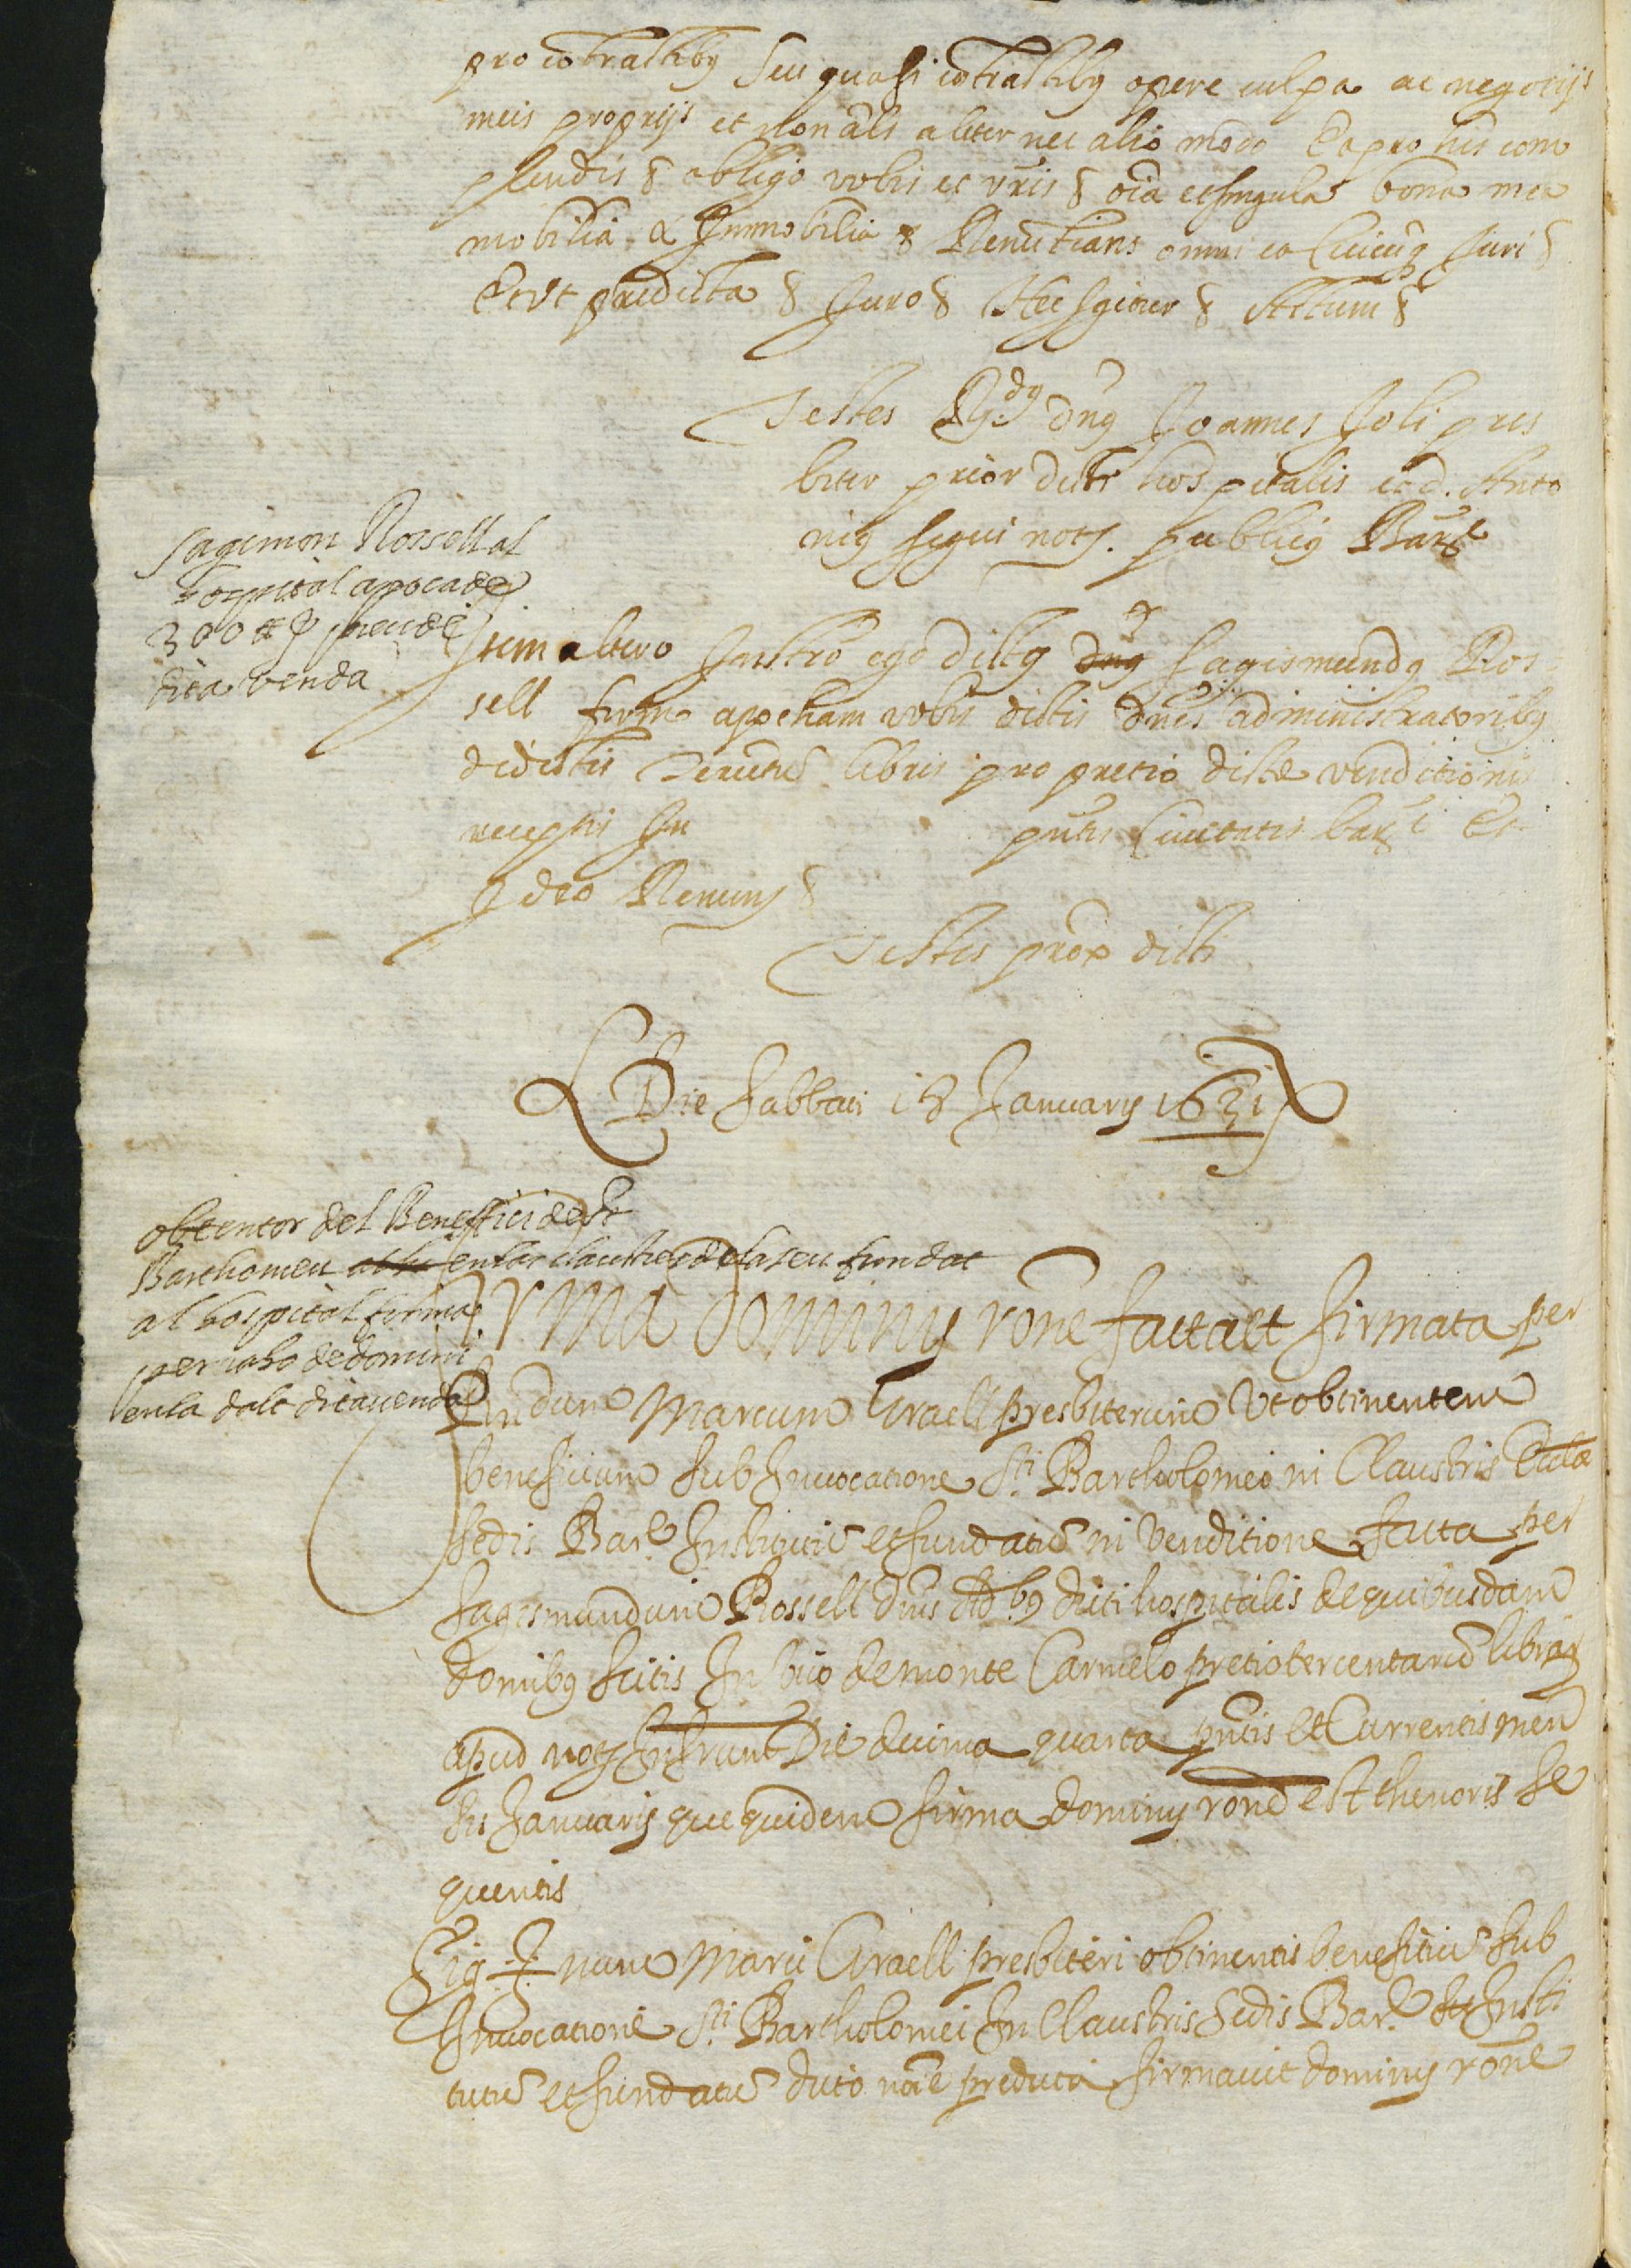 pro cōtractibꝯ seu quasi cōtractibꝯ opere culpa ac negotijs
meis proprijs et non als̄ aliter nec alio modo Et pro his com
plendis & obligo vobis et vr̄is & oīa et singula bona mea
mobilia & Immobilia & Renūtians omni et cuicūq Juri &
Et vt predicta & Juro & Hec Igitur & Actum &
Testes Rꝯ.dꝯ dn̄ꝯ Joannes Joli pres
biter prior dicti hospitalis et d. Anto
niꝯ seguí notꝯ. publicꝯ Barꝯ
Sagimon Rossell al
hospital apoca de
300 ℔ p preu de
dita venda
Item altero Instrō ego dictꝯ dn̄ꝯ Sagismundꝯ Ros
sell firmo apocham vobis dictis dn̄is administratoribꝯ
dictis Tercentū libris pro pretio dicte venditionis
receptis In pn̄tis Ciuitatis barꝯ Et
Ideo Renunꝯ &
Testes prox̄ dicti
Die Sabbati 18 Januarij 1631
obtentor del Benefici de St
Barthomeu en las claustres de la seu fundat
al hospital firma
per raho de domini
en la dalt dita venda
Firma Dominij rōne facta et firmata per
Rndum Marcum Graell presbiterum vt obtinentem
beneficium sub Inuocatione Sti. Bartholomeo in Claustris Eccla
sedis Barē. Institutū et fundatū in venditione facta per
Sagismundum Rossell dn̄is Adbꝯ dicti hospitalis de quibusdam
domibꝯ sitis In vico de monte Carmelo pretio tercentarū librarꝯ
apud notꝯ Infrum Die decima quarta pn̄tis et Currentis men
sis Januarij que quidem firma dominij rōne est thenoris se
quentis
Sig num Marci Graell presbiteri obtinentis beneficiū sub
Inuocatione Sti. Bartholomei In Claustris Sedis Barē. Insti
tutū et fundatū dicto nōe predicta firmauit dominij rōne